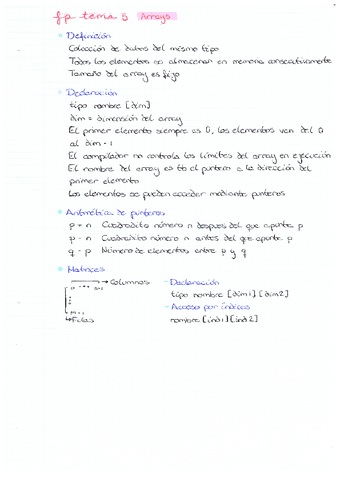 fp tema 5 Arrays
Definición
Colección de datos del mismo tipo
Todos los elementos se almacenan en memoria consecutivamente
Tamaño del array es fijo
Declaración
tipo nombre [dim]
dim = dimensión del array
El primer elemento siempre es 0, los elementos van del 0
al dim - 1
El compilador no controla los límites del array en ejecución
El nombre del array es cte el puntero a la dirección del
primer elemento
Los elementos se pueden acceder mediante punteros
Aritmética de punteros
p + n Cuadradito número n después del que apunte p
p - n Cuadradito número n antes del que apunte p
q - p Número de elementos entre p y q
Matrices
→ Columnas - Declaración
0 ... n-1
tipo nombre [dim1] [dim2]
- Acceso por índices
Filas nombre [ind1] [ind2]